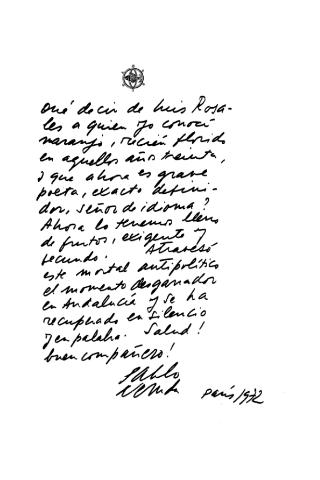 Qué decir de Luis Rosa-
les a quien yo conocí
naranjo, recién florido
en aquellos años treinta,
y que ahora es grave
poeta, exacto defini-
dor, señor de idioma?
Ahora lo tenemos lleno
de frutos, exigente y
fecundo. Atravesó
este mortal antipolítico
el momento desgarrador
en Andalucía y se ha
recuperado en silencio
y en palabra. Salud!
buen compañero!
Pablo
Neruda
París 1972